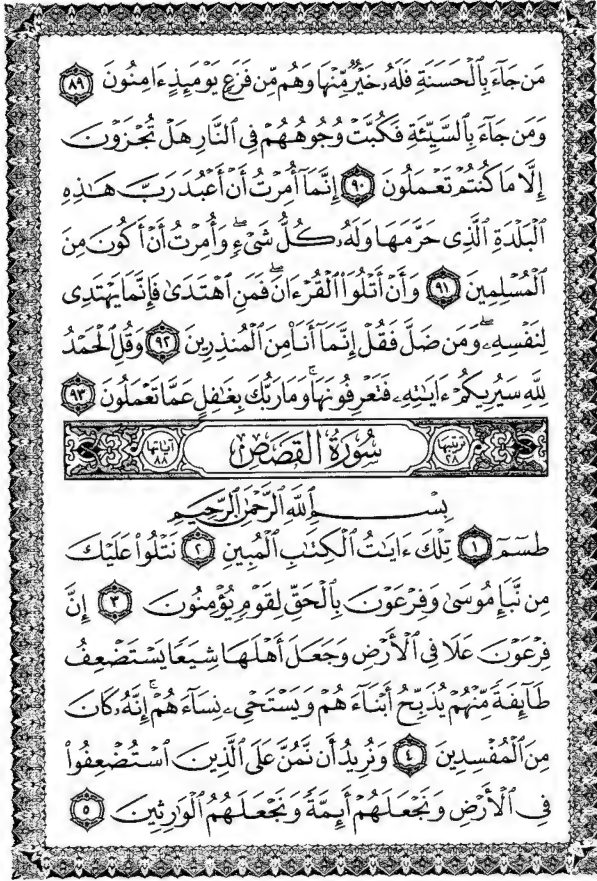 مَن جَآءَ بِٱلْحَسَنَةِ فَلَهُۥ خَيْرٌ مِّنْهَا وَهُم مِّن فَزَعٍ يَوْمَئِذٍ ءَامِنُونَ ٨٩
وَمَن جَآءَ بِٱلسَّيِّئَةِ فَكُبَّتْ وُجُوهُهُمْ فِى ٱلنَّارِ هَلْ تُجْزَوْنَ
إِلَّا مَا كُنتُمْ تَعْمَلُونَ ٩٠ إِنَّمَآ أُمِرْتُ أَنْ أَعْبُدَ رَبَّ هَـٰذِهِ
ٱلْبَلْدَةِ ٱلَّذِى حَرَّمَهَا وَلَهُۥ كُلُّ شَىْءٍۖ وَأُمِرْتُ أَنْ أَكُونَ مِنَ
ٱلْمُسْلِمِينَ ٩١ وَأَنْ أَتْلُوَا۟ ٱلْقُرْءَانَۖ فَمَنِ ٱهْتَدَىٰ فَإِنَّمَا يَهْتَدِى
لِنَفْسِهِۦۖ وَمَن ضَلَّ فَقُلْ إِنَّمَآ أَنَا۠ مِنَ ٱلْمُنذِرِينَ ٩٢ وَقُلِ ٱلْحَمْدُ
لِلَّهِ سَيُرِيكُمْ ءَايَـٰتِهِۦ فَتَعْرِفُونَهَاۚ وَمَا رَبُّكَ بِغَـٰفِلٍ عَمَّا تَعْمَلُونَ ٩٣
ترتيبها ٢٨ سُورَةُ القَصَصِ آياتها ٨٨
بِسْمِ ٱللَّهِ ٱلرَّحْمَـٰنِ ٱلرَّحِيمِ
طسٓمٓ ١ تِلْكَ ءَايَـٰتُ ٱلْكِتَـٰبِ ٱلْمُبِينِ ٢ نَتْلُوا۟ عَلَيْكَ
مِن نَّبَإِ مُوسَىٰ وَفِرْعَوْنَ بِٱلْحَقِّ لِقَوْمٍ يُؤْمِنُونَ ٣ إِنَّ
فِرْعَوْنَ عَلَا فِى ٱلْأَرْضِ وَجَعَلَ أَهْلَهَا شِيَعًا يَسْتَضْعِفُ
طَآئِفَةً مِّنْهُمْ يُذَبِّحُ أَبْنَآءَهُمْ وَيَسْتَحْىِۦ نِسَآءَهُمْۚ إِنَّهُۥ كَانَ
مِنَ ٱلْمُفْسِدِينَ ٤ وَنُرِيدُ أَن نَّمُنَّ عَلَى ٱلَّذِينَ ٱسْتُضْعِفُوا۟
فِى ٱلْأَرْضِ وَنَجْعَلَهُمْ أَئِمَّةً وَنَجْعَلَهُمُ ٱلْوَٰرِثِينَ ٥